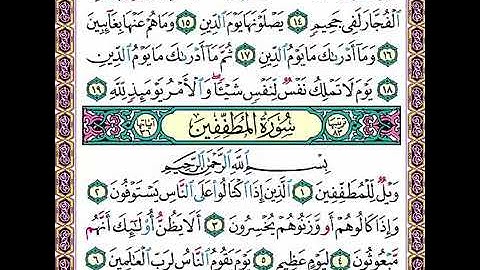 ٱلْفُجَّارَ لَفِى جَحِيمٍ ١٤ يَصْلَوْنَهَا يَوْمَ ٱلدِّينِ ١٥ وَمَا هُمْ عَنْهَا بِغَآئِبِينَ
١٦ وَمَآ أَدْرَىٰكَ مَا يَوْمُ ٱلدِّينِ ١٧ ثُمَّ مَآ أَدْرَىٰكَ مَا يَوْمُ ٱلدِّينِ
١٨ يَوْمَ لَا تَمْلِكُ نَفْسٌ لِّنَفْسٍ شَيْـًٔا وَٱلْأَمْرُ يَوْمَئِذٍ لِّلَّهِ ١٩
سُورَةُ ٱلْمُطَفِّفِينَ
بِسْمِ ٱللَّهِ ٱلرَّحْمَٰنِ ٱلرَّحِيمِ
وَيْلٌ لِّلْمُطَفِّفِينَ ١ ٱلَّذِينَ إِذَا ٱكْتَالُوا۟ عَلَى ٱلنَّاسِ يَسْتَوْفُونَ ٢
وَإِذَا كَالُوهُمْ أَو وَّزَنُوهُمْ يُخْسِرُونَ ٣ أَلَا يَظُنُّ أُو۟لَٰٓئِكَ أَنَّهُم
مَّبْعُوثُونَ ٤ لِيَوْمٍ عَظِيمٍ ٥ يَوْمَ يَقُومُ ٱلنَّاسُ لِرَبِّ ٱلْعَٰلَمِينَ ٦